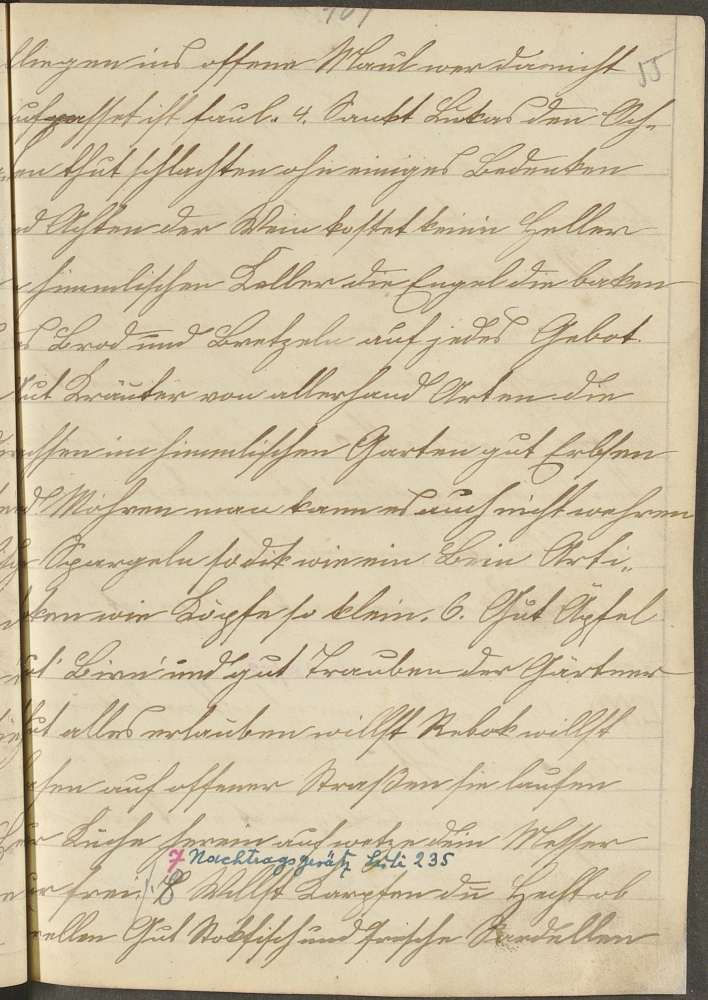 107
55
fliegen ins offene Maul wer da nicht
aufpasset ist faul. 4. Sankt Lukas den Och-
sen thut schlachten ohn einiges Bedenken
und Achten der Wein kostet keinn Heller
himmlischen Keller die Engel die baken
s Brod und Bretzeln auf jedes Gebot.
Gut Kräuter von allerhand Arten die
wachsen im himmlischen Garten gut Erbsen
und Möhren man kann es auch nicht wehren
Spargeln so dik wie ein Bein Arti-
schoken wie Köpfe so klein. 6. Gut Äpfel
gut Birn und gut Trauben der Gärtner
thut alles erlauben willst Rebok willst
Hasen auf offener Straßen sie laufen
zur Küche herein auch wetze dein Messer
7 Nachtragsgerätz Seite 235
nur frei. 8 Willst Karpfen du Hecht ob
Forellen Gut Stokfisch und frische Sardellen